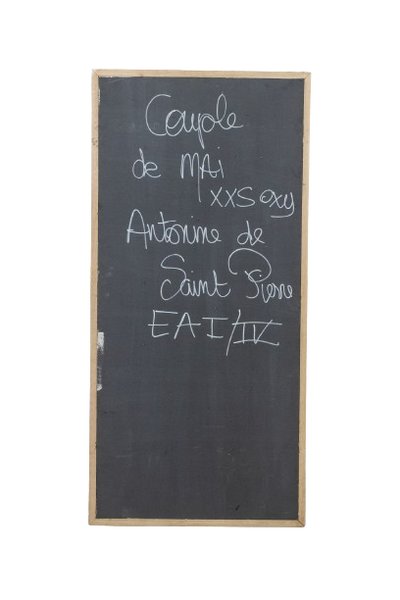 Couple
de MAi
XXSexy
Antonine de
Saint Pierre
EAI/IV